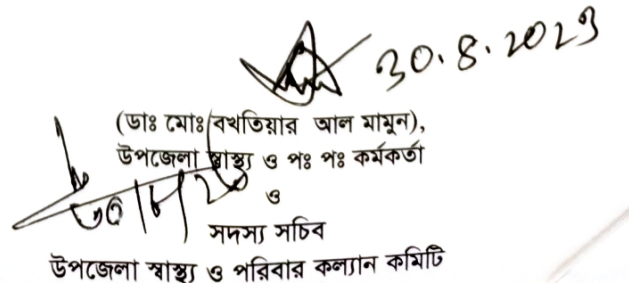 30.8.2023
(ডাঃ মোঃ বখতিয়ার আল মামুন),
উপজেলা স্বাস্থ্য ও পঃ পঃ কর্মকর্তা
ও
সদস্য সচিব
উপজেলা স্বাস্থ্য ও পরিবার কল্যান কমিটি